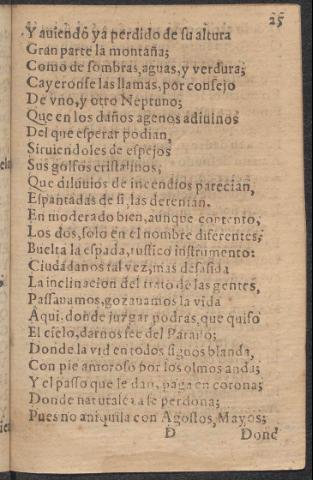 25
Y auiendo ya perdido de su altura
Gran parte la montaña;
Como de sombras, aguas, y verdura;
Cayeronse las llamas, por consejo
De vno, y otro Neptuno;
Que en los daños agenos adiuinos
Del que esperar podian,
Siruiendoles de espejos
Sus golfos cristalinos;
Que diluuios de incendios parecian,
Espantadas de si, las detenian.
En moderado bien, aunque contento,
Los dos, solo en el nombre diferentes;
Buelta la espada, rustico instrumento:
Ciudadanos tal vez; mas desasida
La inclinacion del trato de las gentes,
Passauamos, gozauamos la vida
Aqui. donde juzgar podras, que quiso
El cielo, darnos fee del Paraiso;
Donde la vid en todos signos blanda,
Con pie amoroso por los olmos anda;
Y el passo que le dan, paga en corona;
Donde naturaleza se perdona;
Pues no aniquila con Agostos, Mayos;
D Dond